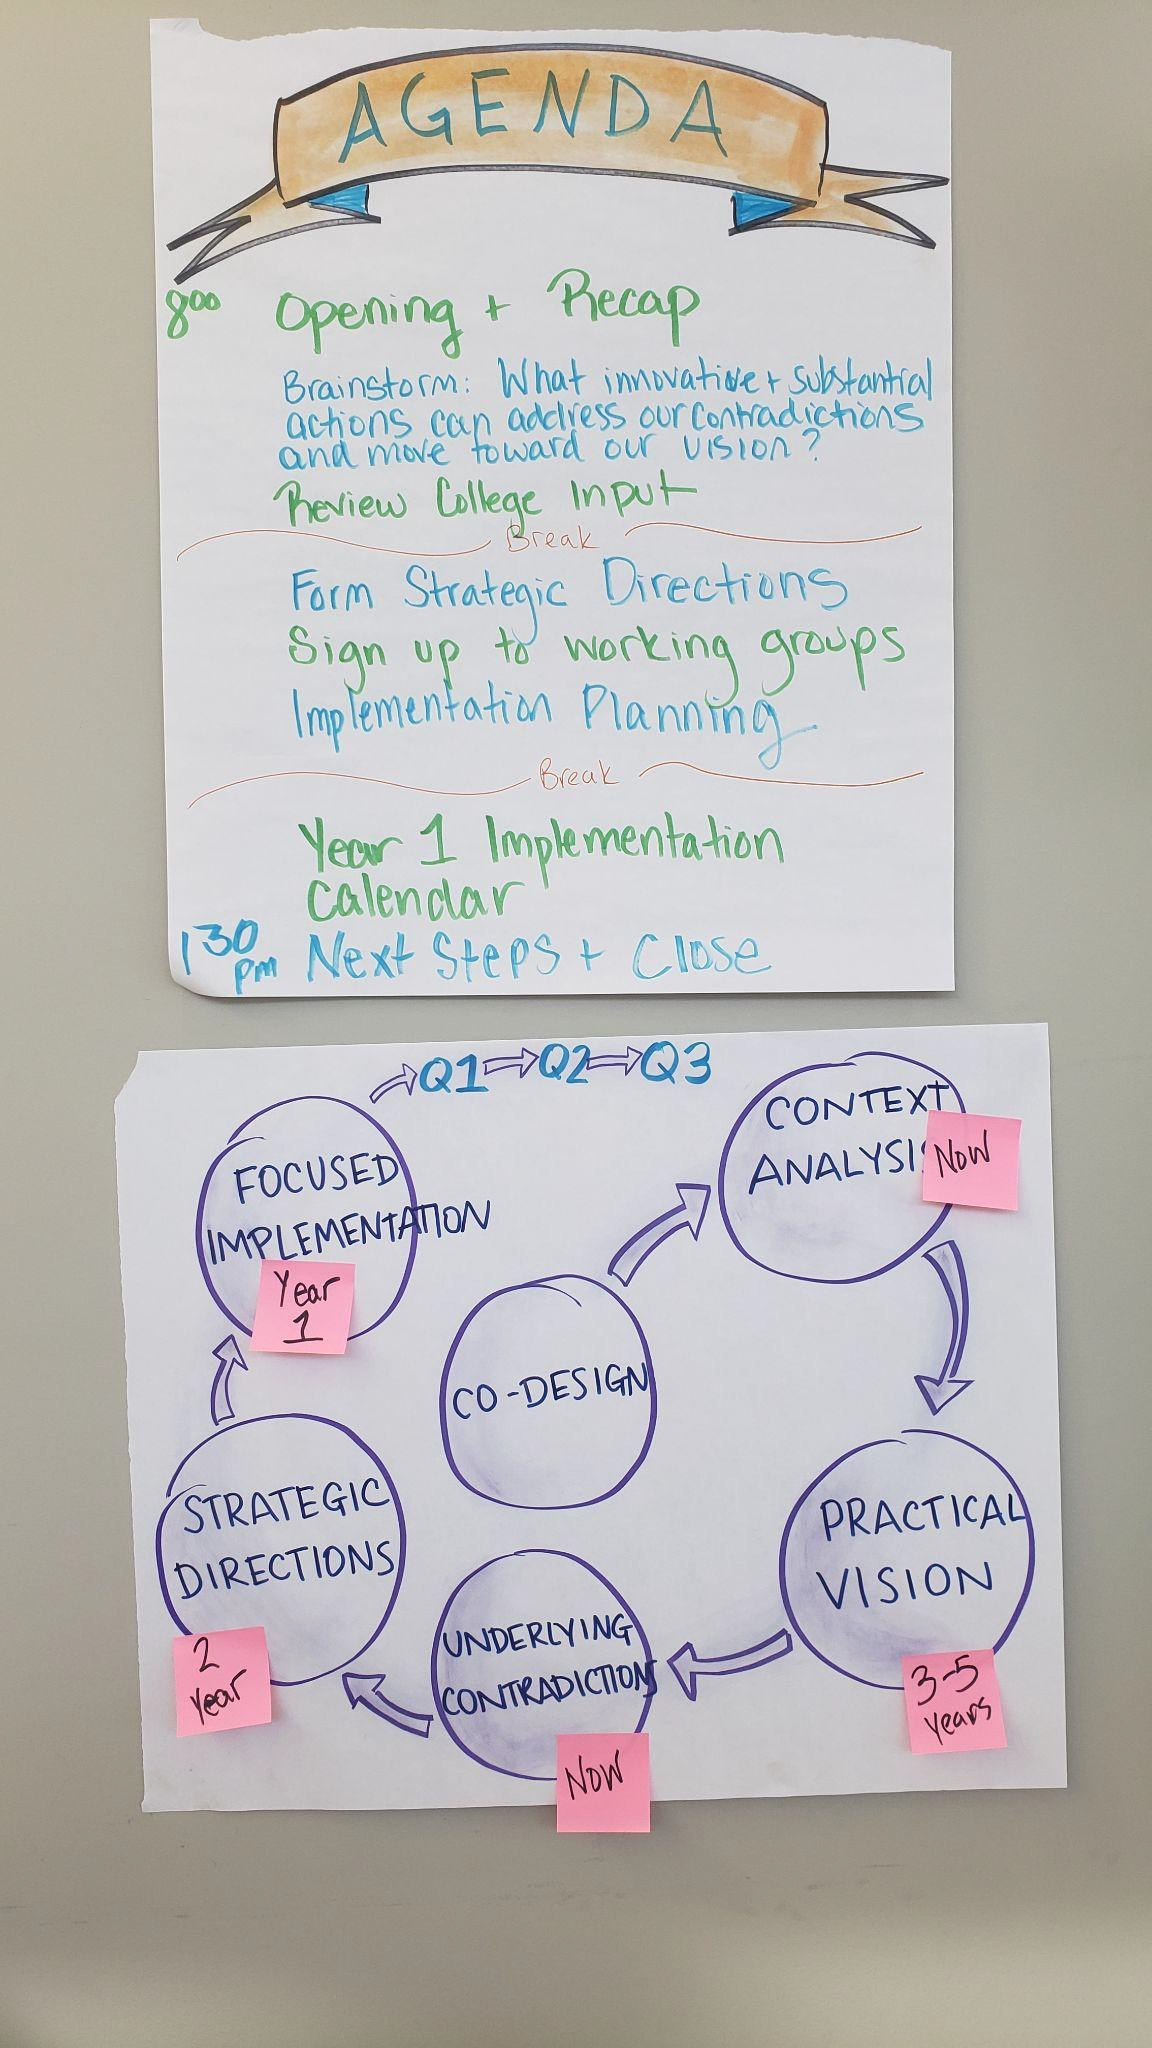 AGENDA
8⁰⁰ Opening + Recap
Brainstorm: What innovative + substantial
actions can address our contradictions
and move toward our vision?
Review College Input
Break
Form Strategic Directions
Sign up to working groups
Implementation Planning
Break
Year 1 Implementation
Calendar
1 30 pm Next Steps + Close
Q1 Q2 Q3
CONTEXT
ANALYSIS
Now
FOCUSED
IMPLEMENTATION
Year
1
CO-DESIGN
PRACTICAL
VISION
3-5
Years
UNDERLYING
CONTRADICTIONS
Now
STRATEGIC
DIRECTIONS
2
Year